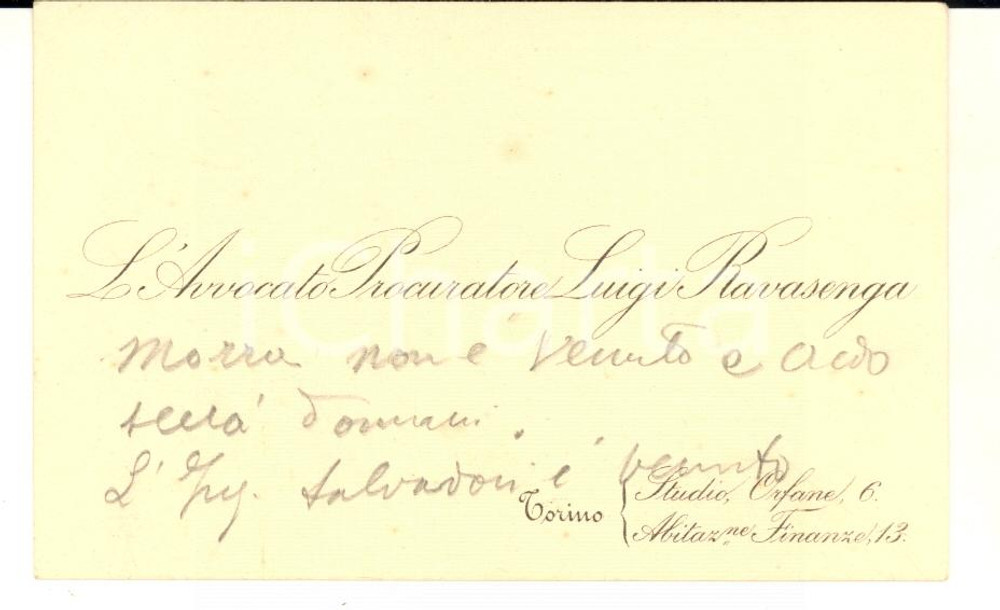 L'Avvocato Procuratore Luigi Ravasenga
Morra non è venuto e
domani.
L'Ing. Salvadori è venuto
Torino
Studio, Orfane, 6.
Abitazne Finanze, 13.
iCharta